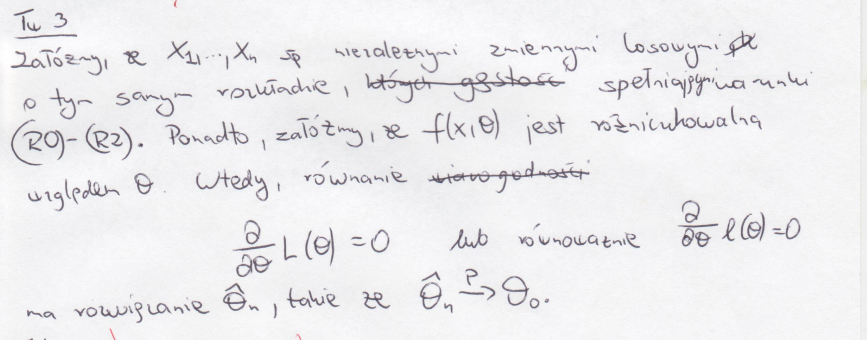 Tw 3
Załóżmy, że X₁,...,Xₙ są niezależnymi zmiennymi losowymi
o tym samym rozkładzie, których gęstość spełniającymi warunki
(R0)-(R2). Ponadto, załóżmy, że f(x,θ) jest różniczkowalna
względem θ. Wtedy, równanie wiarogodności
∂/∂θ L(θ) = 0 lub równoważnie ∂/∂θ l(θ) = 0
ma rozwiązanie θ̂ₙ, takie że θ̂ₙ →ᴾ θ₀.